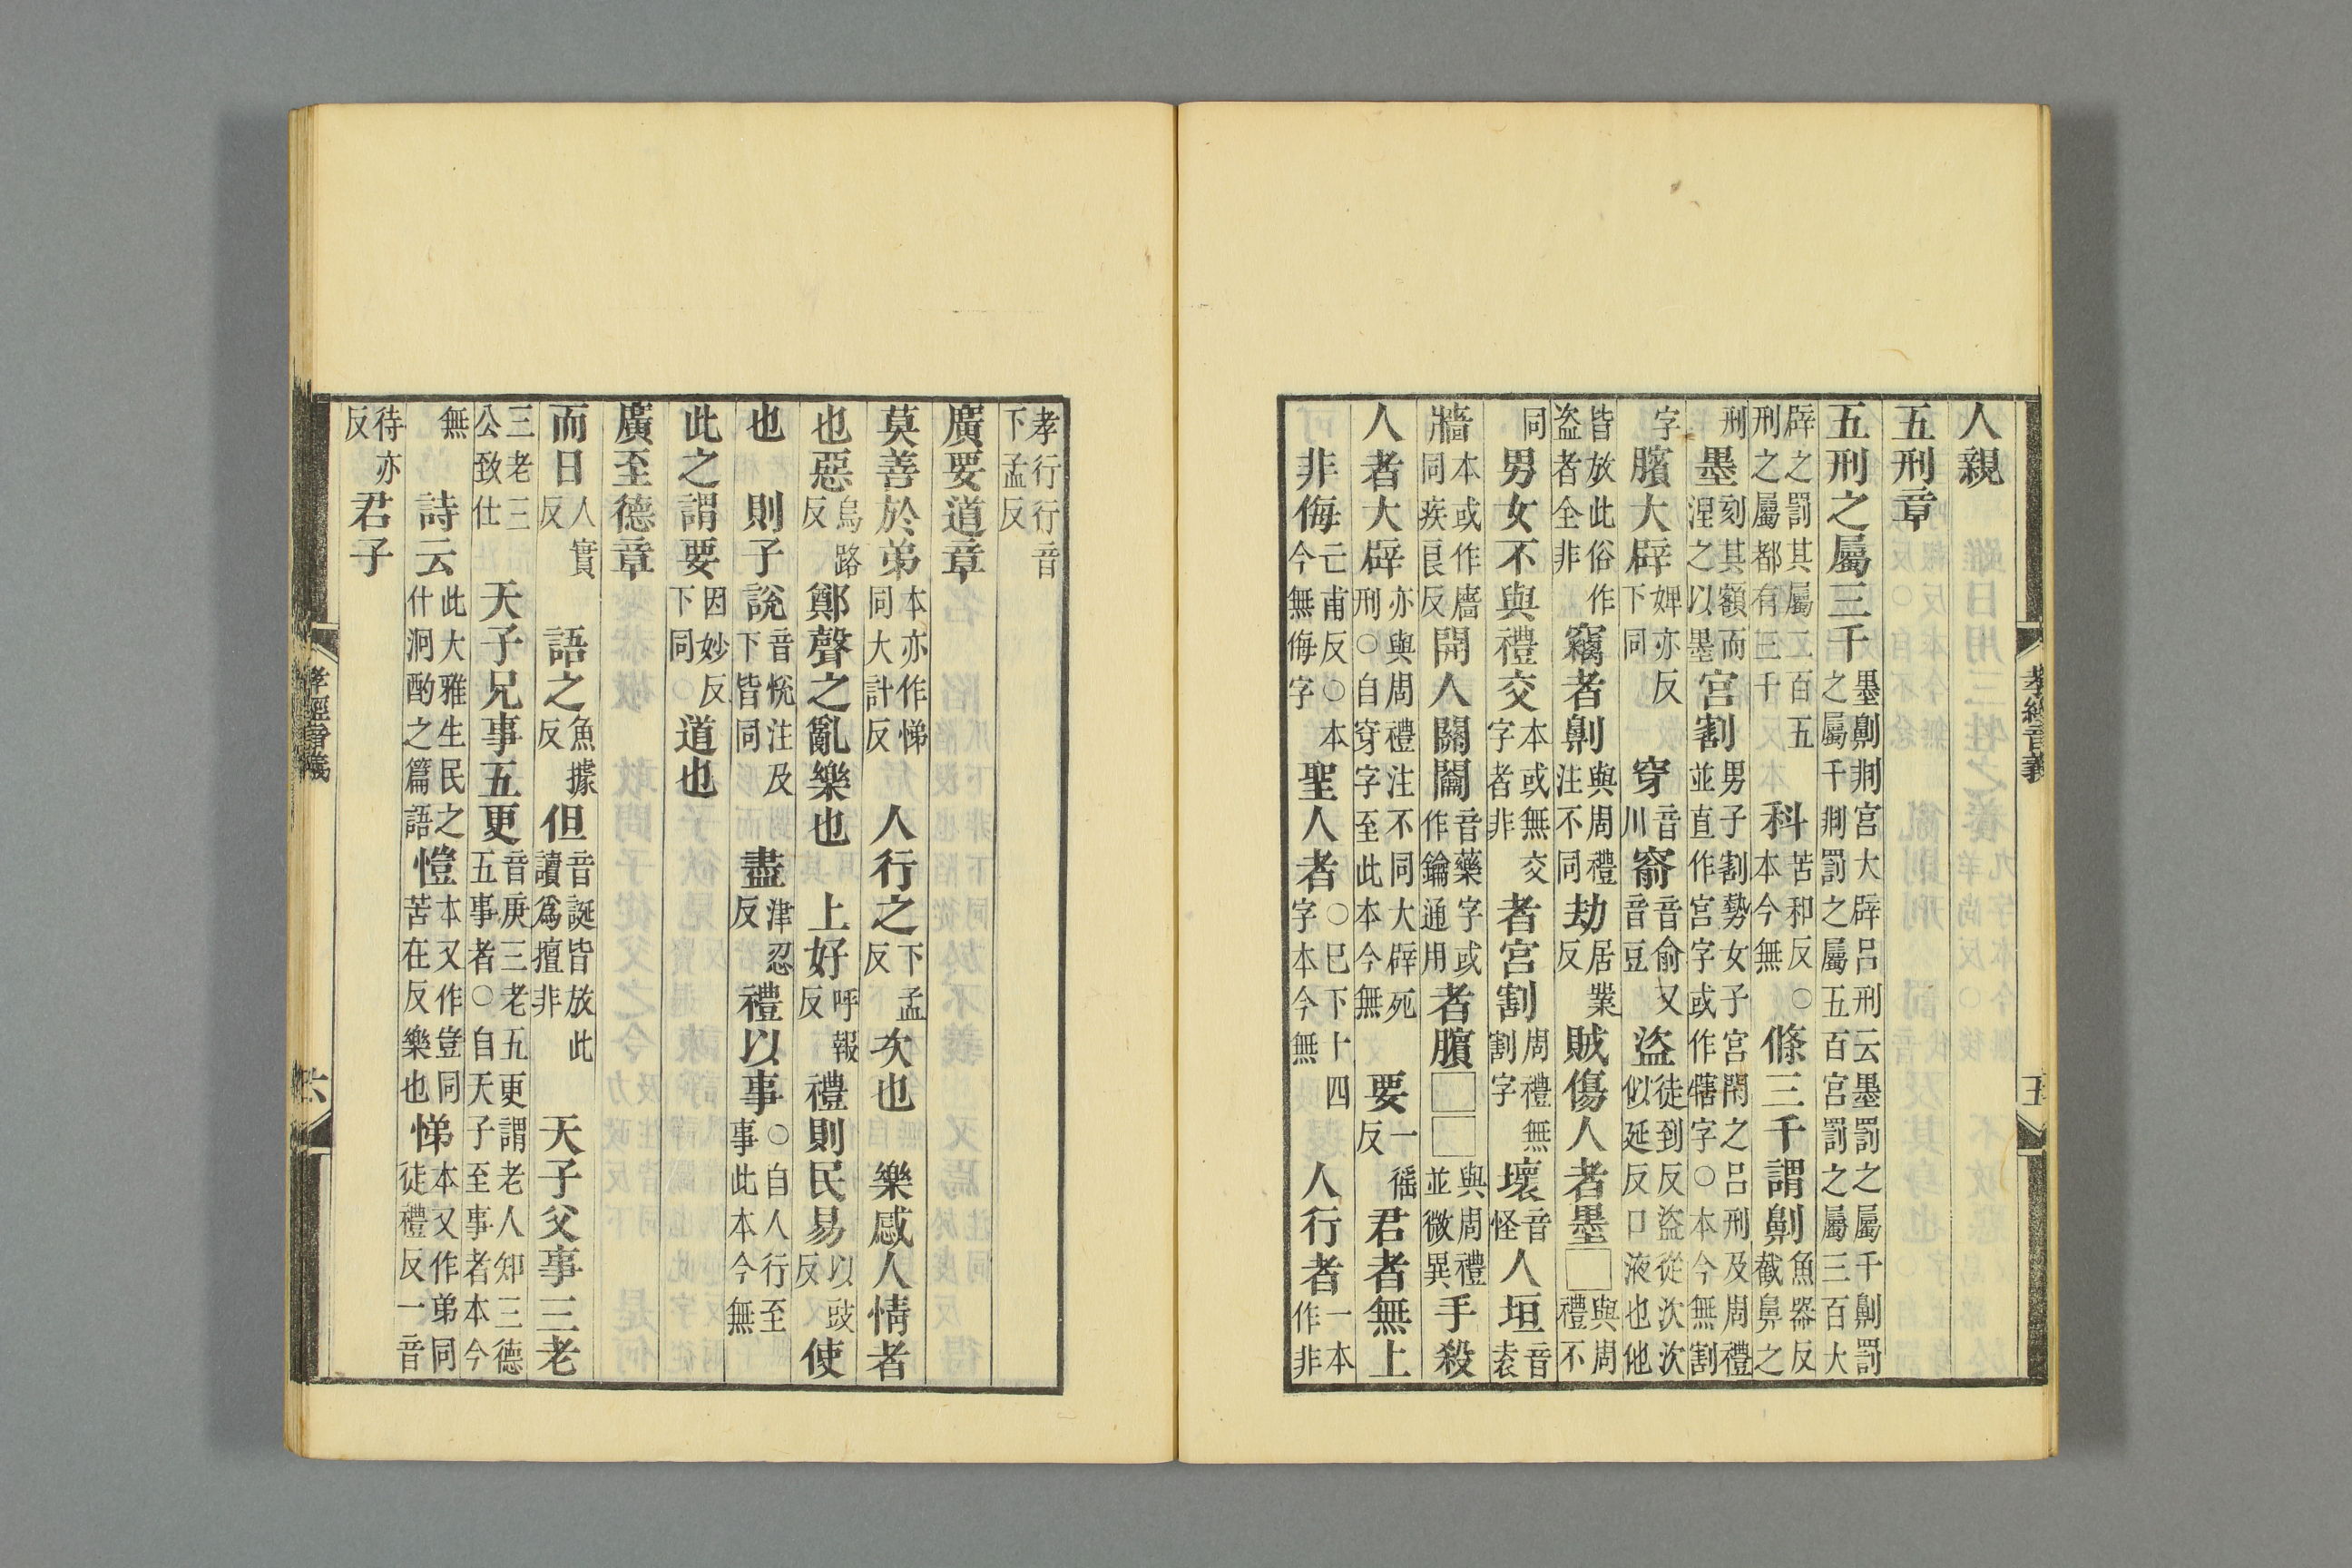 人親
五刑章
五刑之屬三千墨劓剕宮大辟呂刑云墨罰之屬千劓罰之屬千剕罰之屬五百宮罰之屬三百大
辟之罰其屬二百五刑之屬都有三千科苦和反○本今無條三千謂劓魚器反截鼻之
刑墨刻其額而涅之以墨宮割男子割勢女子宮閉之呂刑及周禮並直作宮字或作犗字○本今無割
字臏大辟婢亦反下同穿音川窬音俞又音豆盜徒到反盜從㳄㳄似延反口液也他
皆放此俗作盗者全非竊者劓與周禮注不同劫居業反賊傷人者墨□與周禮不
同男女不與禮交本或無交字者非者宮割周禮無割字壞音怪人垣音袁
牆本或作廧同疾良反開人關闟音藥字或作鑰通用者臏□□與周禮並微異手殺
人者大辟亦與周禮注不同大辟死刑○自穿字至此本今無要一徭反君者無上
非侮亡甫反○本今無侮字聖人者○巳下十四字本今無人行者一本作非
孝經音義
五
孝行行音下孟反
廣要道章
莫善於弟本亦作悌同大計反人行之下孟反次也樂感人情者
也惡烏路反鄭聲之亂樂也上好呼報反禮則民易以豉反使
也則子說音悅注及下皆同盡津忍反禮以事○自人行至事此本今無
此之謂要因妙反下同○道也
廣至德章
而日人實反語之魚據反但音誕皆放此讀爲擅非天子父事三老
三老三公致仕天子兄事五更音庚三老五更謂老人知三德五事者○自天子至事者本今
無詩云此大雅生民之什泂酌之篇語愷本又作豈同苦在反樂也悌本又作弟同徒禮反一音
待亦反君子
孝經音義
六